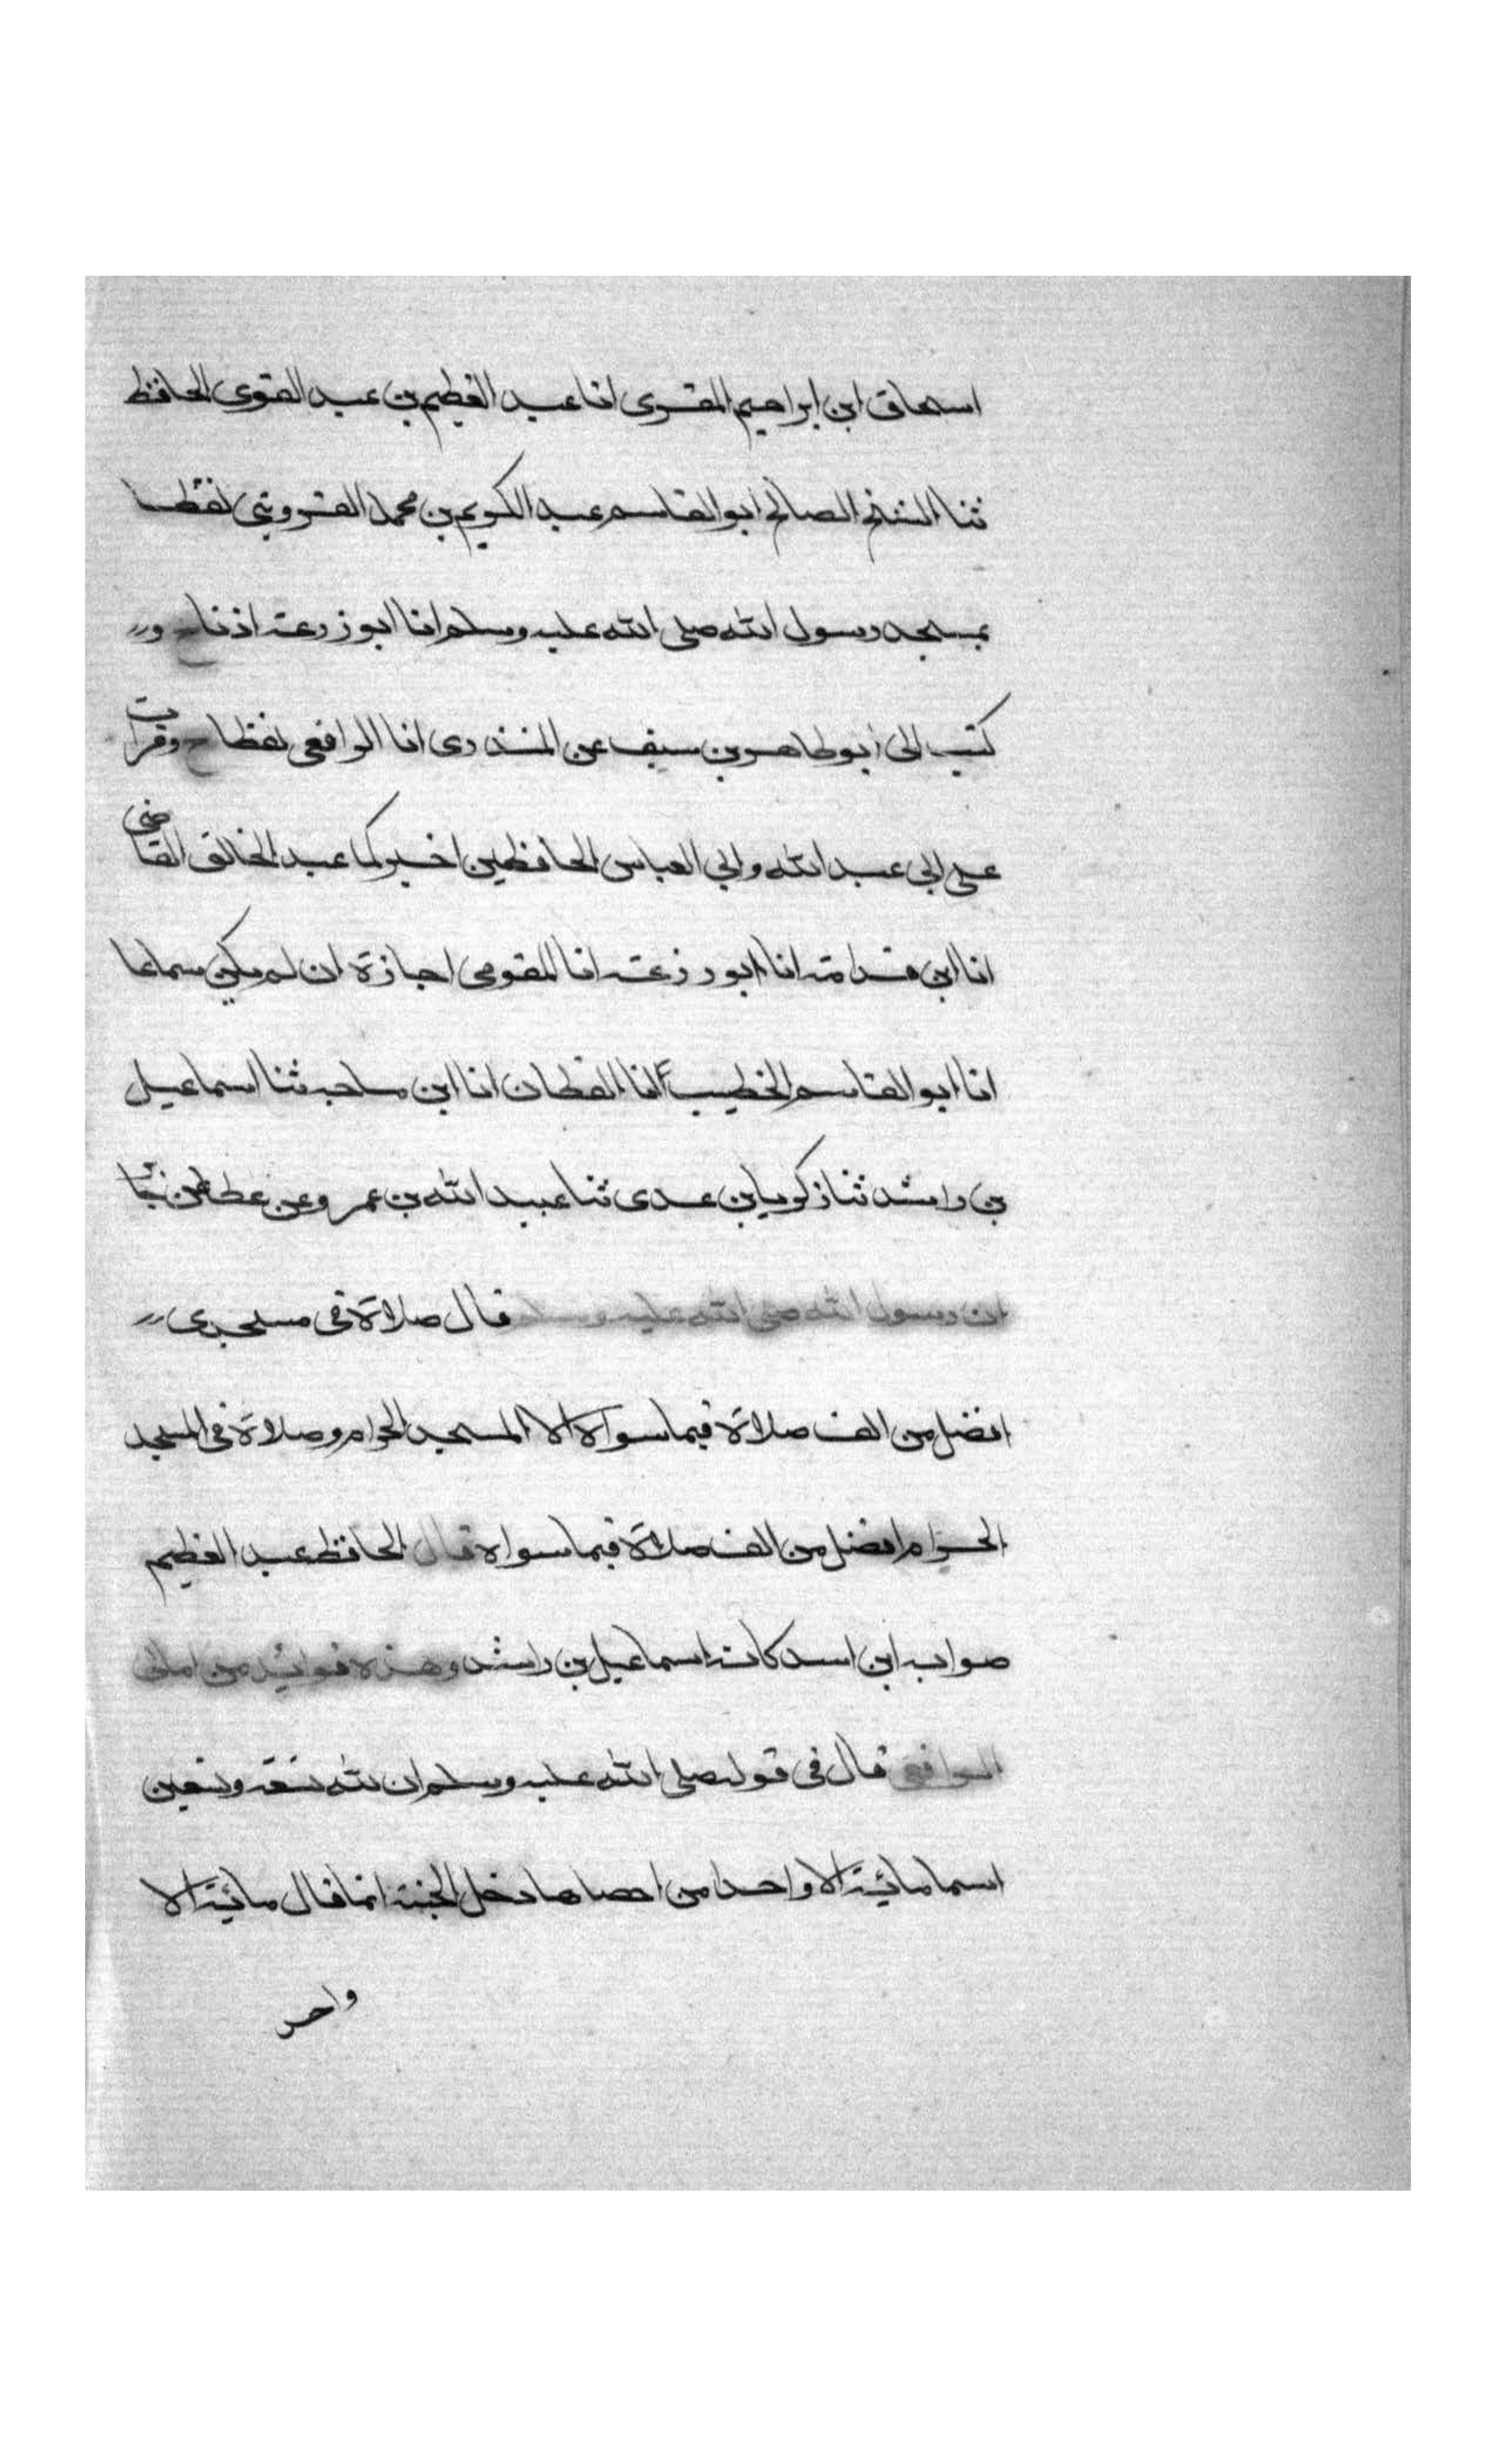 اسحاق ابن ابراهيم المقرى انا عبد العظيم بن عبد القوى الحافظ
ثنا الشيخ الصالح ابو القاسم عبد الكريم بن محمد القزوينى لفظا
بمسجد رسول الله صلى الله عليه وسلم انا ابو زرعة اذنا ح و
كتب الى ابو طاهر بن سيف عن المنذرى انا الرافعى لفظا ح وقرات
على ابى عبد الله وابى العباس الحافظين اخبركما عبد الخالق القاضى
انا ابن قدامة انا ابو زرعة انا المقومى اجازة ان لم يكن سماعا
انا ابو القاسم الخطيب انا القطان انا ابن ماجه ثنا اسماعيل
بن راشد ثنا زكريا بن عدى ثنا عبيد الله بن عمرو عن عطا عن
ان رسول الله صلى الله عليه وسلم قال صلاة فى مسجدى
افضل من الف صلاة فيما سواه الا المسجد الحرام وصلاة فى المسجد
الحرام افضل من الف صلاة فيما سواه قال الحافظ عبد العظيم
صوابه ابن اسد كان اسماعيل بن راشد وهذه فوائد من امالى
الرافعى قال فى قوله صلى الله عليه وسلم ان لله تسعة وتسعين
اسما مائية الا واحدا من احصاها دخل الجنة انما قال مائية الا
واحد